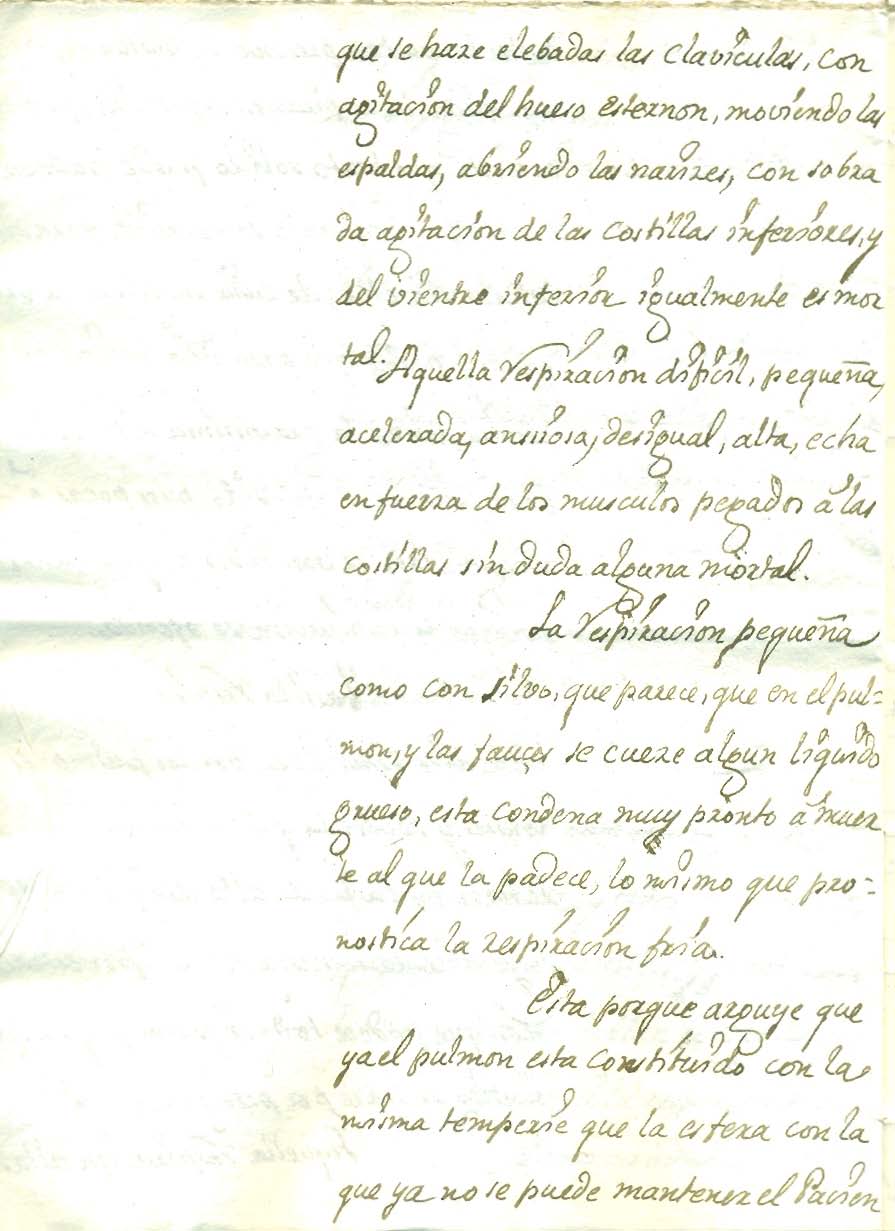 que se haze elebadas las claviculas, con
agitacion del hueso esternon, moviendo las
espaldas, abriendo las narizes, con sobra
da agitacion de las costillas inferiores, y
del vientre inferior igualmente es mor
tal. Aquella respiracion dificil, pequeña,
acelerada, anssiosa, desigual, alta, echa
en fuerza de los musculos pegados â las
costillas sin duda alguna mortal.
La respiracion pequeña
como con silvo, que parece, que en el pul=
mon, y las fauçes se cueze algun liquido
grueso, esta condena muy pronto â muer
te al que la padece, lo mismo que pro=
nostica la respiracion fria.
Esta porque arguye que
ya el pulmon esta constituido con la
misma temperie que la esfera con la
que ya no se puede mantener el Pacien